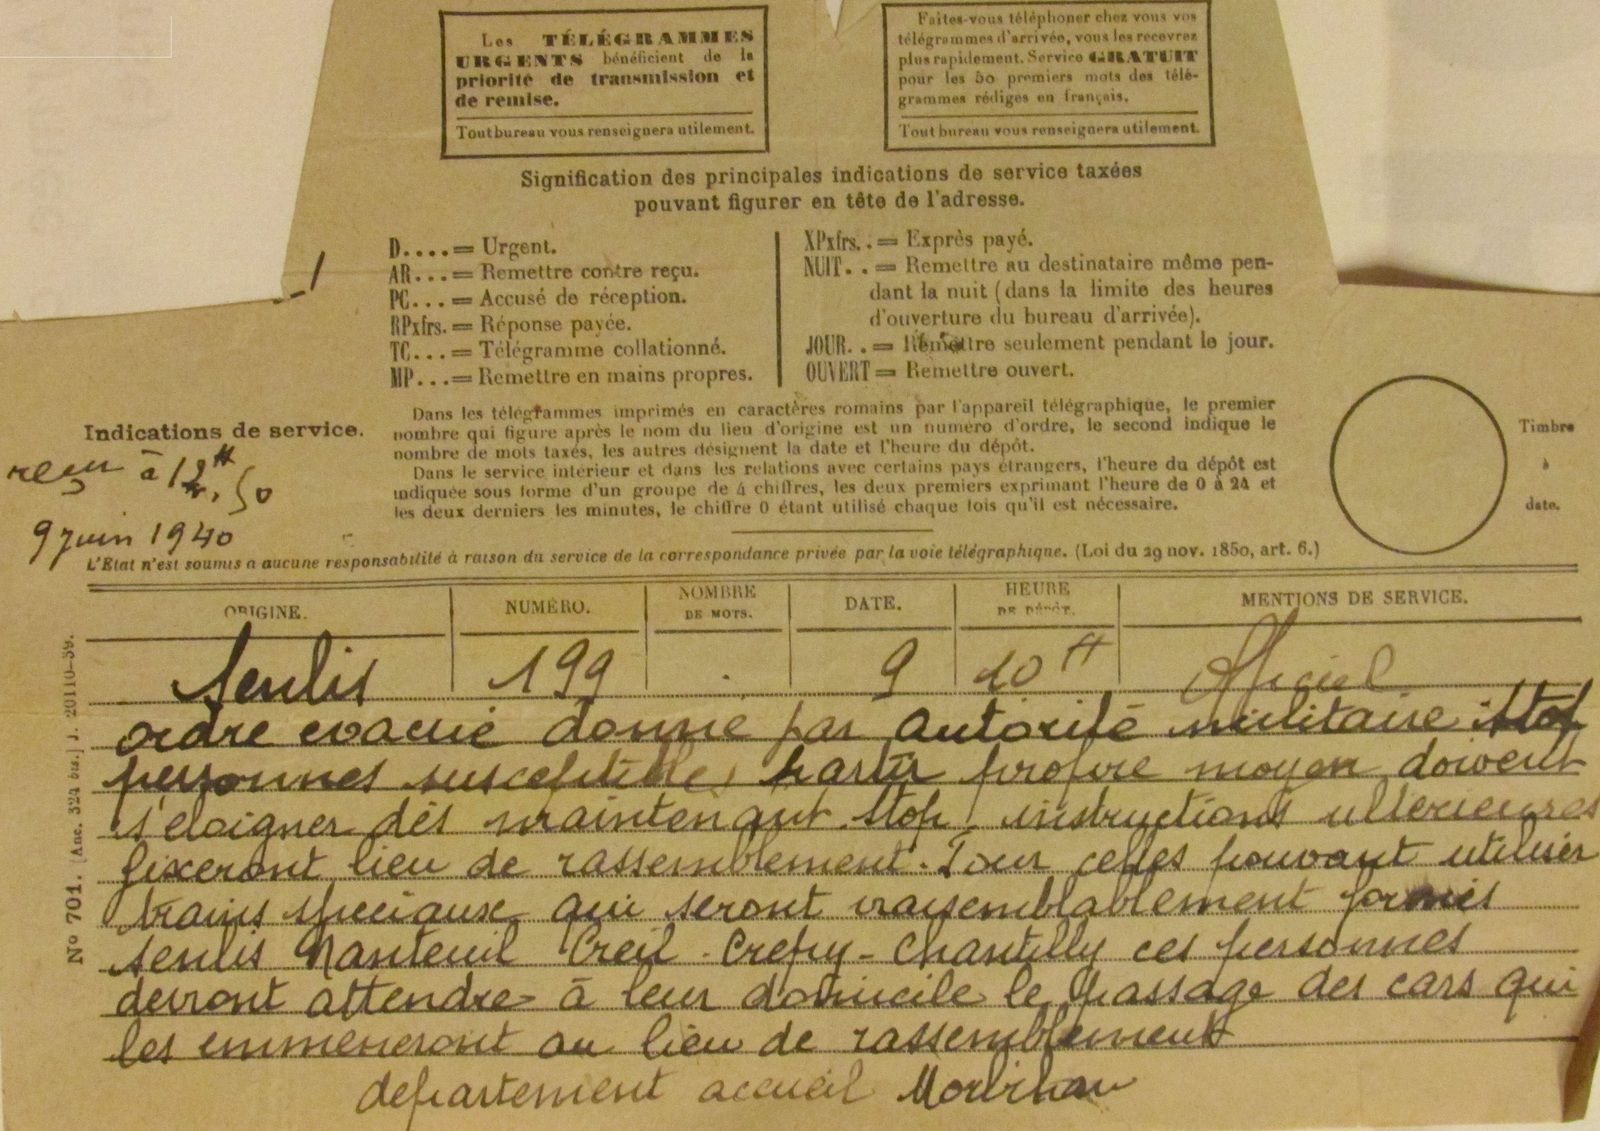 Les TÉLÉGRAMMES
URGENTS bénéficient de la
priorité de transmission et
de remise.
Tout bureau vous renseignera utilement.
Faites-vous téléphoner chez vous vos
télégrammes d'arrivée, vous les recevrez
plus rapidement. Service GRATUIT
pour les 50 premiers mots des télé-
grammes rédigés en français.
Tout bureau vous renseignera utilement.
Signification des principales indications de service taxées
pouvant figurer en tête de l'adresse.
D.... = Urgent.
AR... = Remettre contre reçu.
PC... = Accusé de réception.
RPxfrs. = Réponse payée.
TC... = Télégramme collationné.
MP... = Remettre en mains propres.
XPxfrs. . = Exprès payé.
NUIT. . = Remettre au destinataire même pen-
dant la nuit (dans la limite des heures
d'ouverture du bureau d'arrivée).
JOUR. . = Remettre seulement pendant le jour.
OUVERT = Remettre ouvert.
Dans les télégrammes imprimés en caractères romains par l'appareil télégraphique, le premier
nombre qui figure après le nom du lieu d'origine est un numéro d'ordre, le second indique le
nombre de mots taxés, les autres désignent la date et l'heure du dépôt.
Dans le service intérieur et dans les relations avec certains pays étrangers, l'heure du dépôt est
indiquée sous forme d'un groupe de 4 chiffres, les deux premiers exprimant l'heure de 0 à 24 et
les deux derniers les minutes, le chiffre 0 étant utilisé chaque fois qu'il est nécessaire.
Indications de service.
reçu à 12H, 50
9 juin 1940
Timbre
à
date.
L'État n'est soumis à aucune responsabilité à raison du service de la correspondance privée par la voie télégraphique. (Loi du 29 nov. 1850, art. 6.)
ORIGINE. NUMÉRO. NOMBRE DE MOTS. DATE. HEURE DE DÉPÔT. MENTIONS DE SERVICE.
Senlis 199 . 9 10 H Officiel
ordre evacué donné par autorité militaire Stop
personnes susceptibles partir propre moyen doivent
s'eloigner dès maintenant Stop instructions ulterieures
fixeront lieu de rassemblement. Pour celles pouvant utiliser
trains speciaux qui seront vraisemblablement formés
senlis Nanteuil Creil - Crepy - Chantilly ces personnes
devront attendre à leur domicile le passage des cars qui
les emmèneront au lieu de rassemblement
departement accueil Morbihan
No 701. [Anc. 324 bis.] J. 20110-39.